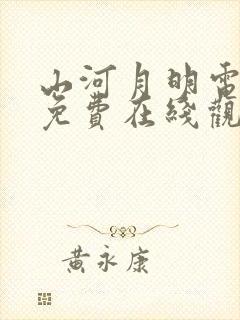 山河月明電
免費在綫觀
黃永康